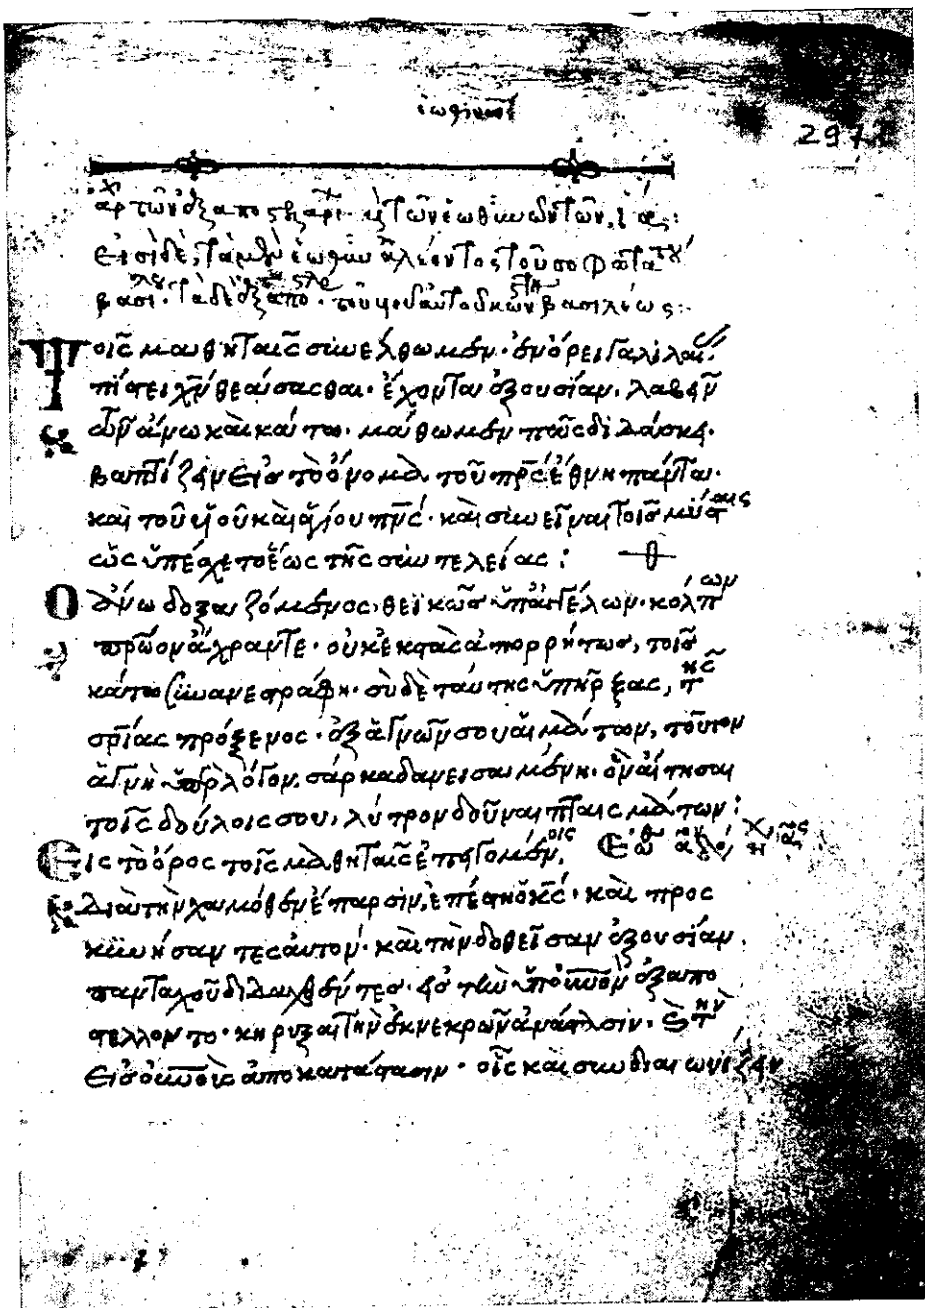 ἑωθινὰ
297
ἀρχ τῶν ἐξαποστειλαρι· κ τῶν ἑωθινῶν τῶν ια:
Εἰσὶ δὲ, τὰ μὲν ἑωθινὰ λέοντος τοῦ σοφωτάτου
βασι· τὰ δὲ ἐξαπο· τοῦ υἱοῦ αὐτοῦ κων βασιλέως:
Τοῖς μαθηταῖς συνέλθωμεν· ἐν ὄρει γαλιλαίας
πίστει χν θεάσασθαι· ἔχοντα ἐξουσίαν, λαβεῖν
τῶν ἄνω καὶ κάτω· μάθωμεν πῶς διδάσκει·
βαπτίζειν εἰς τὸ ὄνομα τοῦ πρς ἔθνη πάντα·
καὶ τοῦ υἱοῦ καὶ ἁγίου πνς· καὶ συνεῖναι τοῖς μύσταις
ὡς ὑπέσχετο ἕως τῆς συντελείας:
Ὁ ἄνω δοξαζόμενος, θεϊκῶς ὑπ' ἀγγέλων· κόλπων
πρώων ἄχραντε· οὐκ ἐκστὰς ἀπορρήτως, τοῖς
κάτω συνανεστράφη· σὺ δὲ ταύτης ὑπῆρξας, τῆς
σρίας πρόξενος· ἐξ ἁγνῶν σου αἱμάτων, τοῦτον
ἁγνὴ ὑπὲρ λόγον, σάρκα δανεισαμένη· ὃν αἴτησαι
τοῖς δούλοις σου, λύτρον δοῦναι πταισμάτων:
Εἰς τὸ ὄρος τοῖς μαθηταῖς ἐπειγομένοις, Ἑωθ
διὰ τὴν χαμόθεν ἔπαρσιν, ἐπέστη ὁ κς· καὶ προς
κυνήσαντες αὐτόν· καὶ τὴν δοθεῖσαν ἐξουσίαν
πανταχοῦ διδαχθέντες· εἰς τὴν ὑπ' οὐνὸν ἐξαπε
στέλλοντο· κηρῦξαι τὴν ἐκ νεκρῶν ἀνάστασιν· κ τὴν
εἰς οὐνοὺς ἀποκατάστασιν· οἷς καὶ συνδιαιωνίζειν